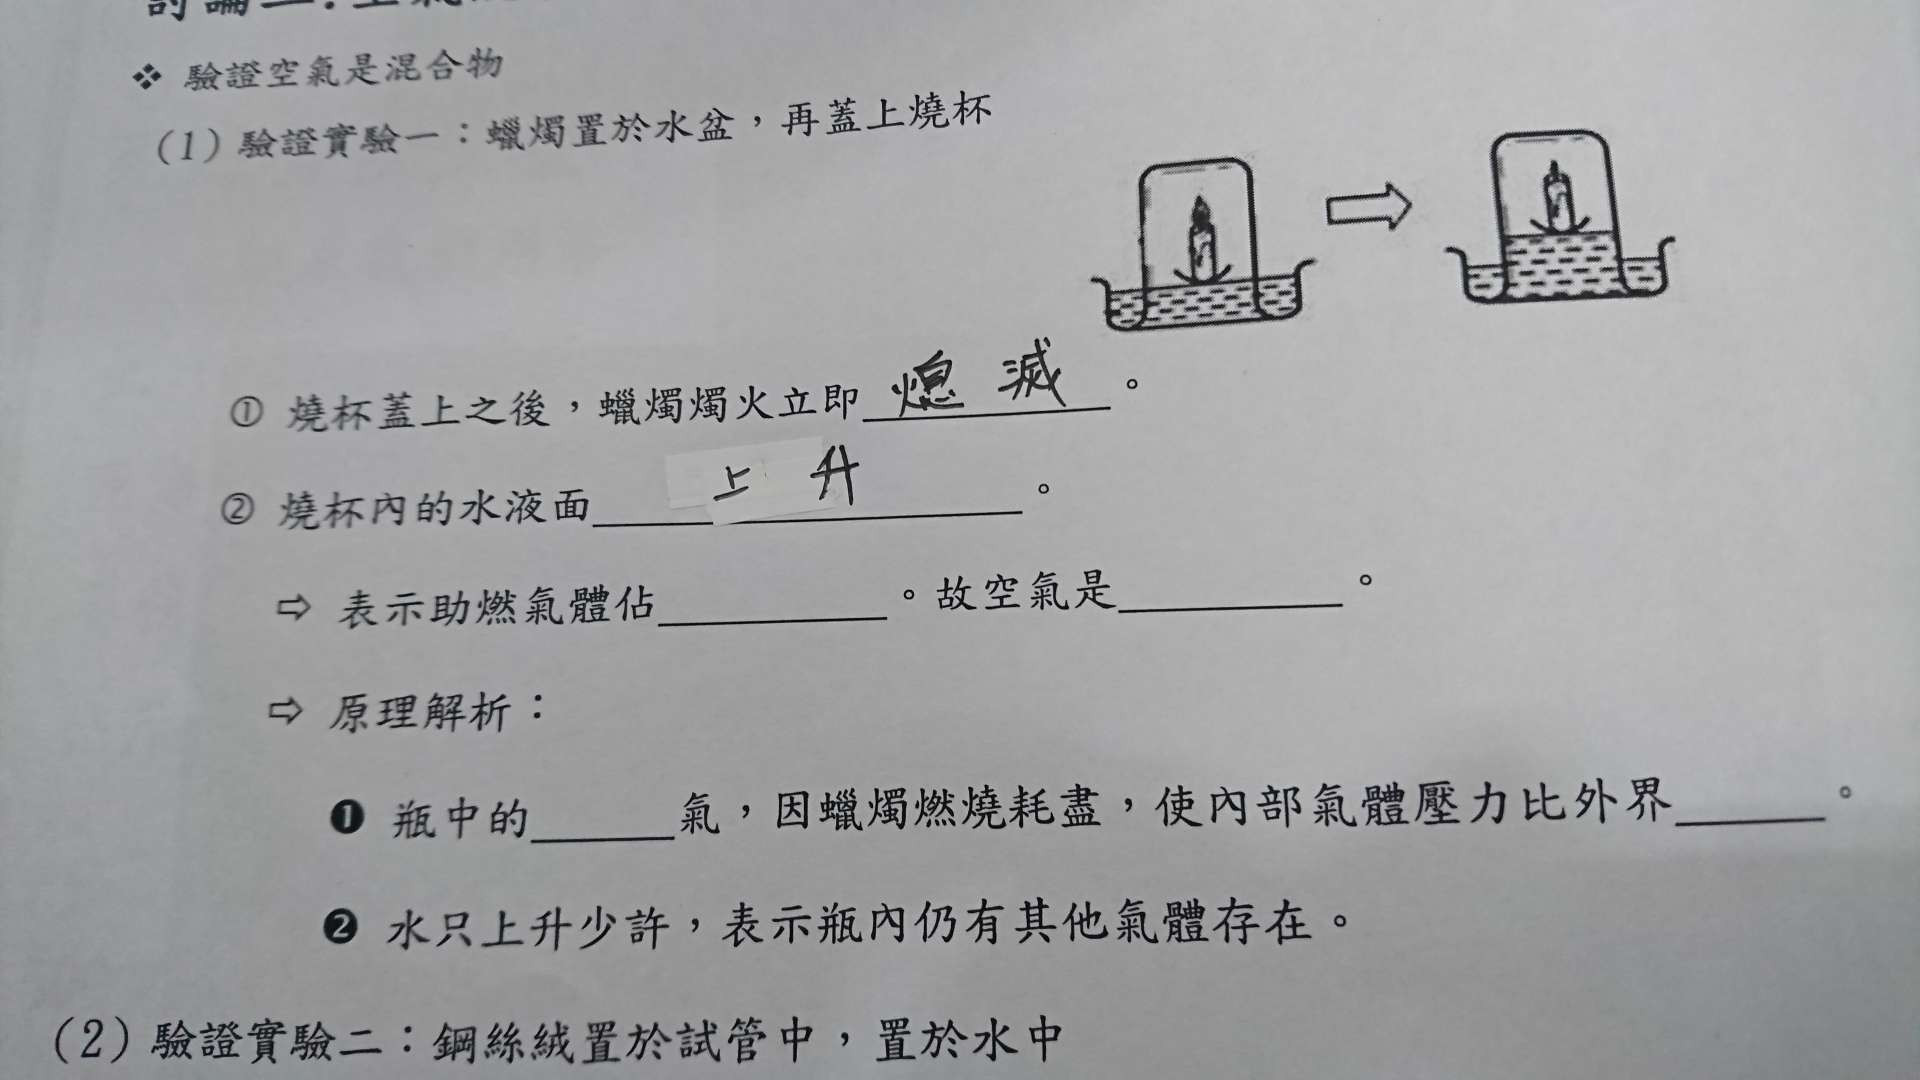 ❖ 驗證空氣是混合物
(1) 驗證實驗一：蠟燭置於水盆，再蓋上燒杯
① 燒杯蓋上之後，蠟燭燭火立即 熄滅 。
② 燒杯內的水液面 上升 。
⇨ 表示助燃氣體佔______。故空氣是______。
⇨ 原理解析：
❶ 瓶中的______氣，因蠟燭燃燒耗盡，使內部氣體壓力比外界______。
❷ 水只上升少許，表示瓶內仍有其他氣體存在。
(2) 驗證實驗二：鋼絲絨置於試管中，置於水中